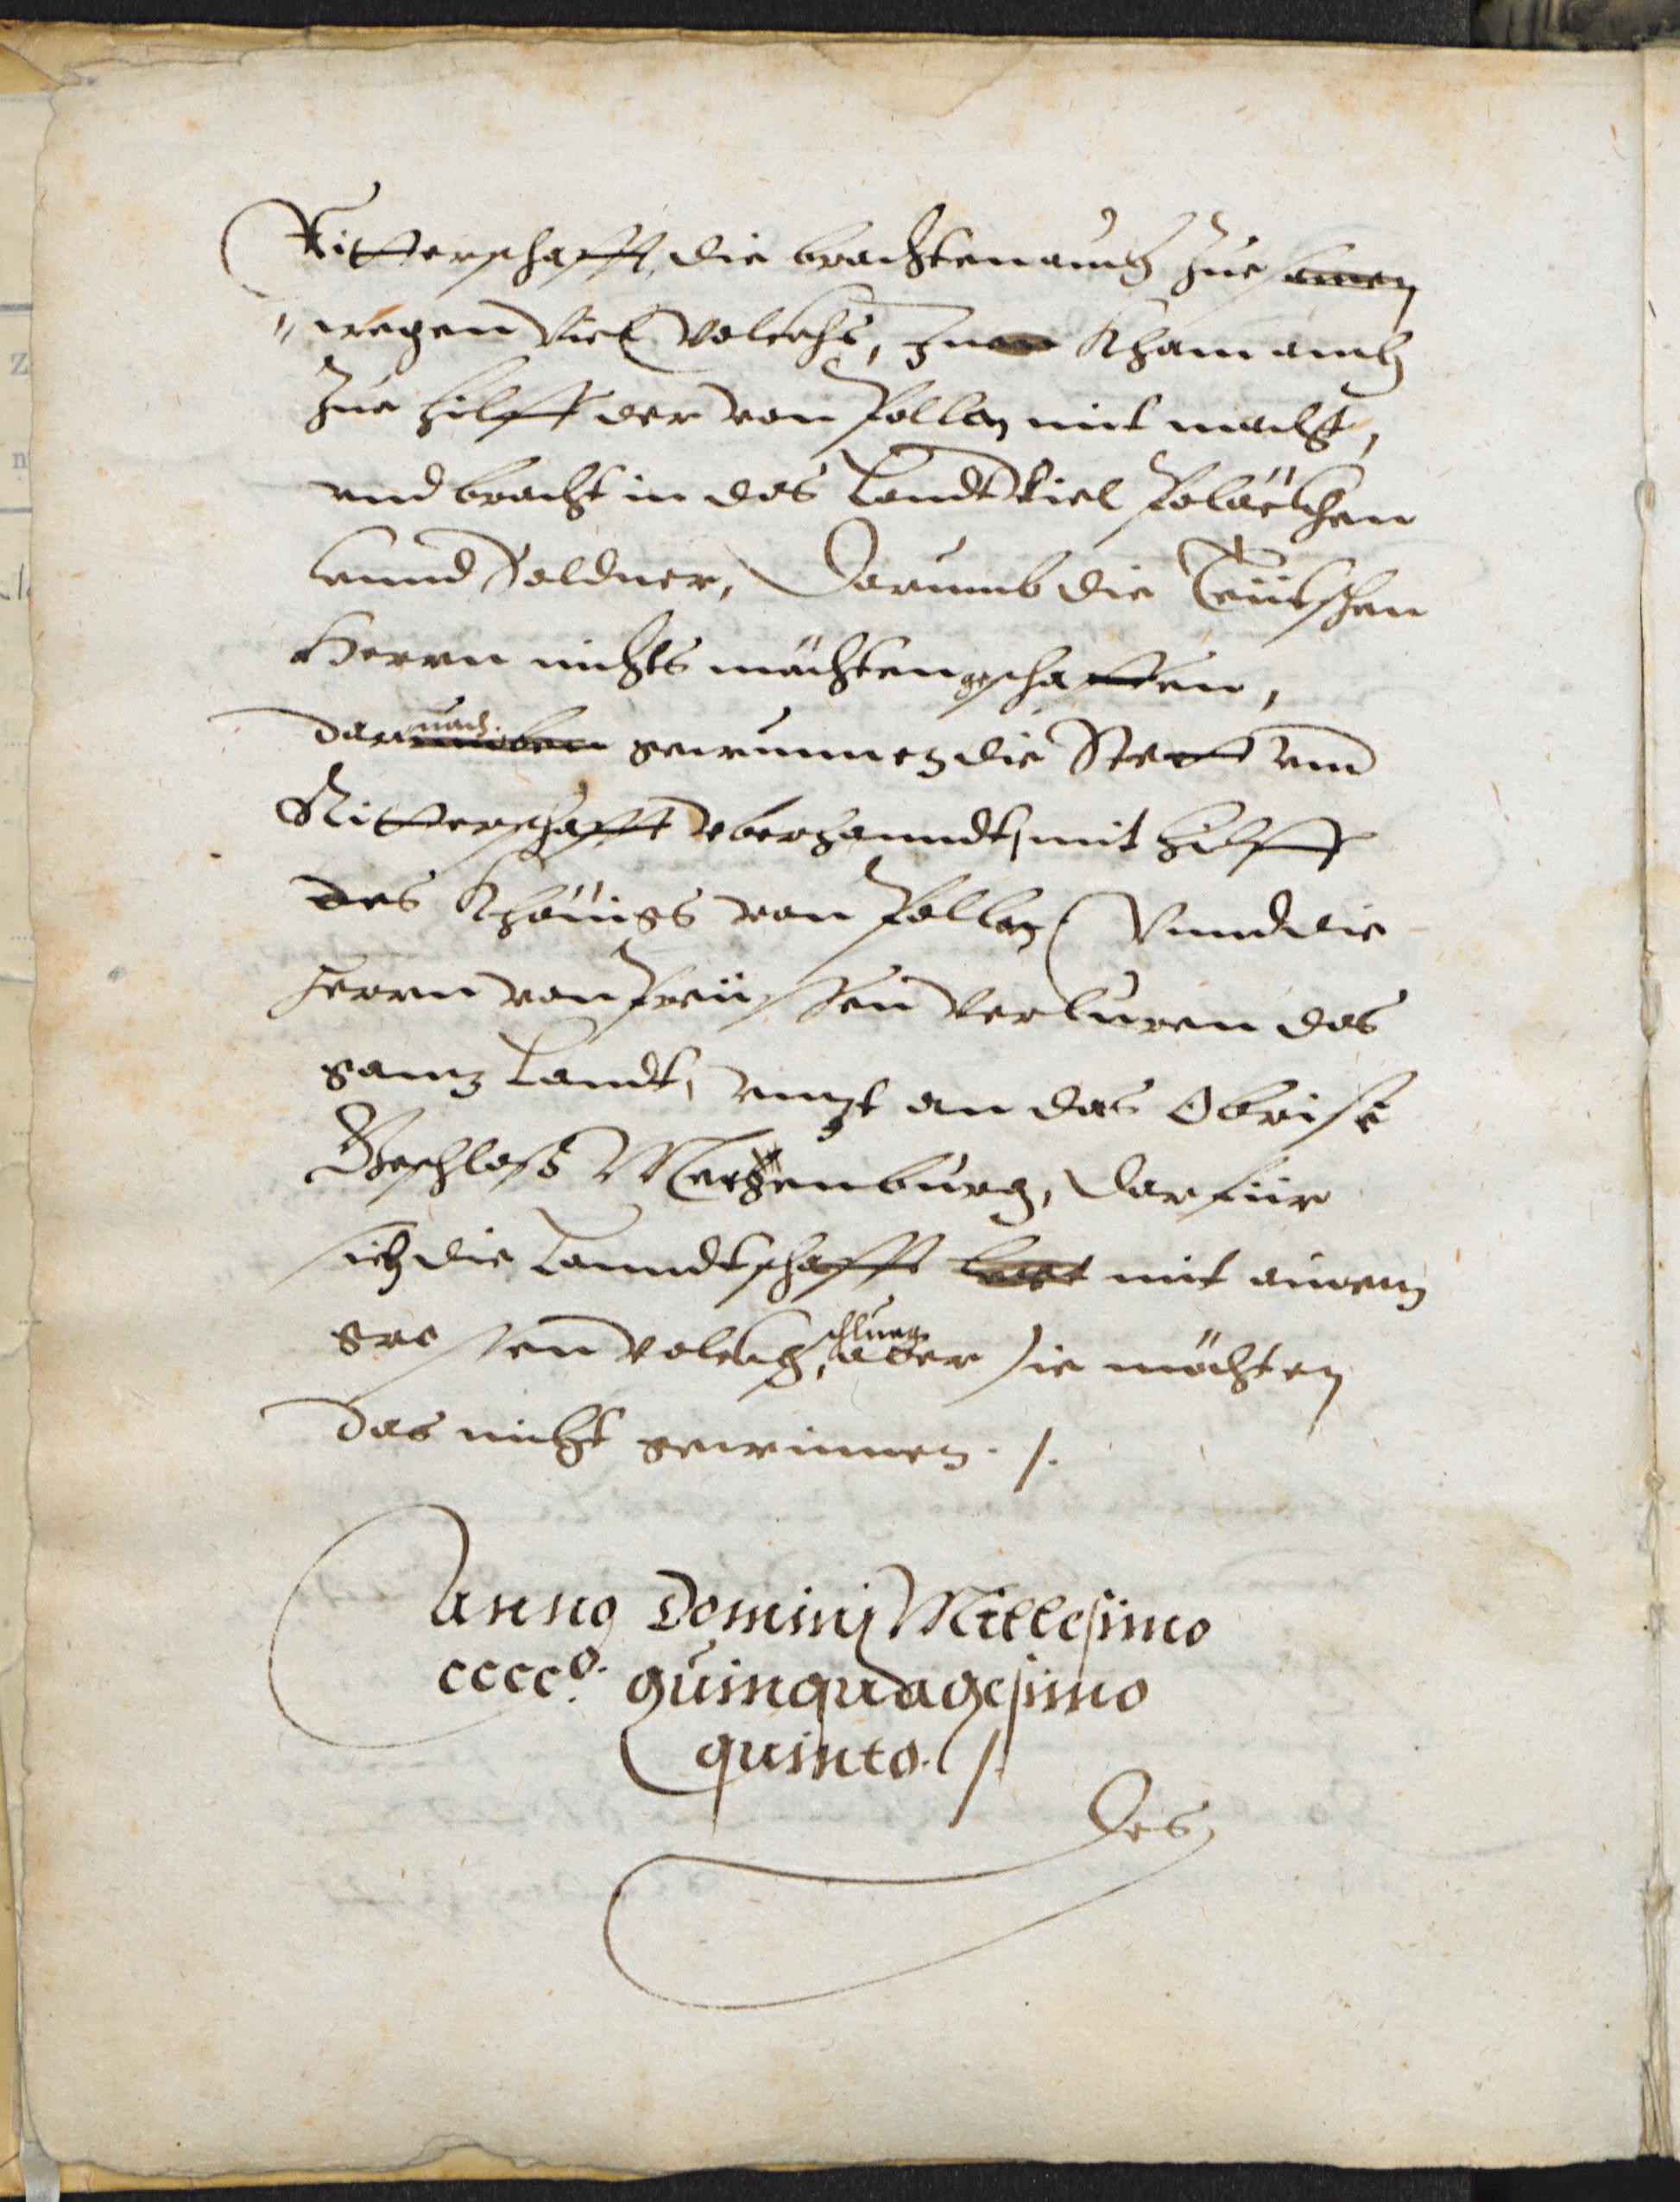 Ritterschafft, die brachten auch zue
wegen viel volckhs, Kham auch
zue hilff der von Pollen mit macht,
vnd bracht in das Landt viel Poläckhen
vnnd Soldner, Darumb die Teütschen
Herrn nichts möchten geschaffen,
darnach gewunnen die Stett vnd
Ritterschafft vberhanndt, mit hilff
des Khönigs von Pollen, Vnnd die
Herrn von Preüssen Verluren das
ganz Landt, vnnzt an das Obrist
Geschloß Mergenburg, darfür
sich die Lanndtschafft mit ainem
grossen volckh, schlueg aber sie möchten
das nicht gewinnen ./.
Anno Domini Millesimo
cccc.º quinquagesimo
quinto ./.
Des